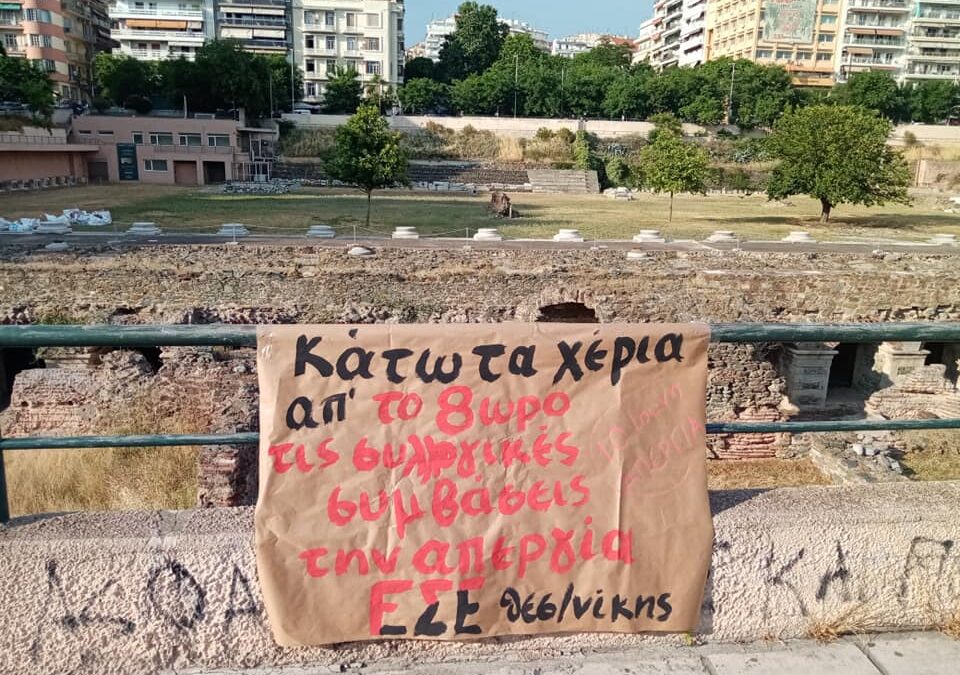 κάτω τα χέρια
απ' το 8ωρο
τις συλλογικές
συμβάσεις
την απεργία
ΕΣΕ θεσ/νίκης